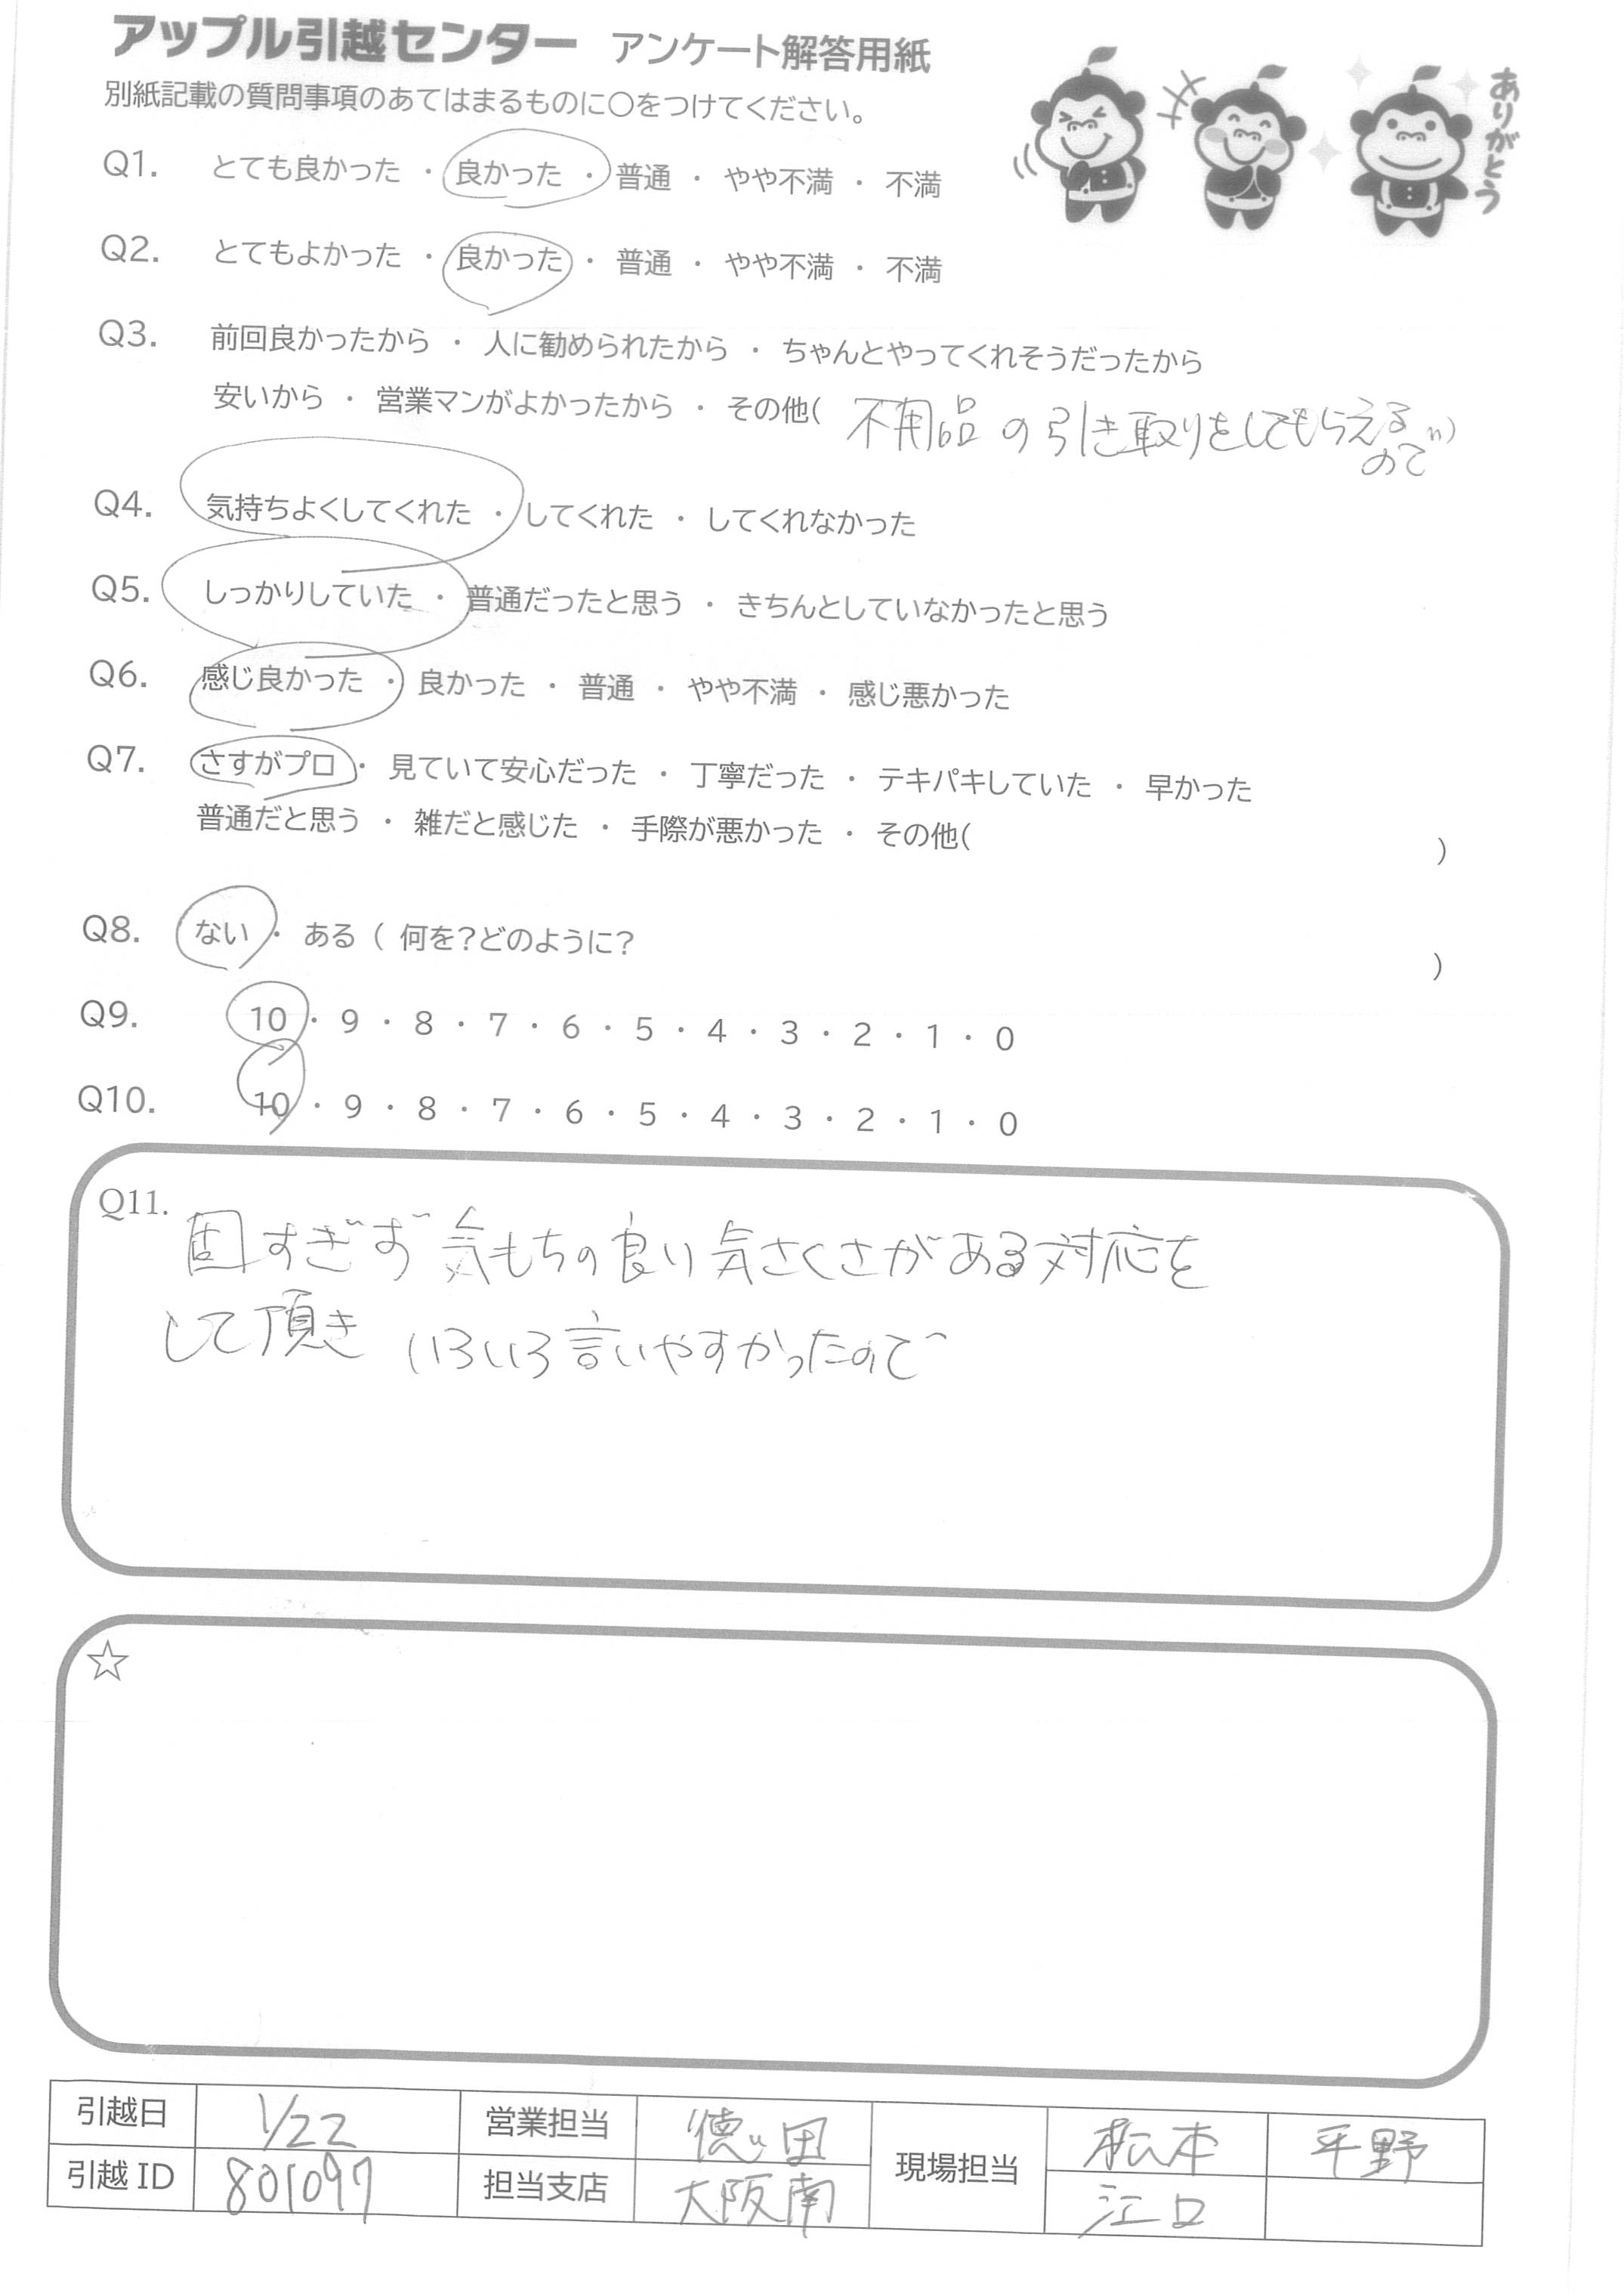 アップル引越センター アンケート解答用紙
別紙記載の質問事項のあてはまるものに○をつけてください。
ありがとう
Q1. とても良かった ・ 良かった ・ 普通 ・ やや不満 ・ 不満
Q2. とてもよかった ・ 良かった ・ 普通 ・ やや不満 ・ 不満
Q3. 前回良かったから ・ 人に勧められたから ・ ちゃんとやってくれそうだったから
安いから ・ 営業マンがよかったから ・ その他( 不用品の引き取りをしてもらえる )
ので
Q4. 気持ちよくしてくれた ・ してくれた ・ してくれなかった
Q5. しっかりしていた ・ 普通だったと思う ・ きちんとしていなかったと思う
Q6. 感じ良かった ・ 良かった ・ 普通 ・ やや不満 ・ 感じ悪かった
Q7. さすがプロ ・ 見ていて安心だった ・ 丁寧だった ・ テキパキしていた ・ 早かった
普通だと思う ・ 雑だと感じた ・ 手際が悪かった ・ その他( )
Q8. ない ・ ある ( 何を?どのように? )
Q9. 10 ・ 9 ・ 8 ・ 7 ・ 6 ・ 5 ・ 4 ・ 3 ・ 2 ・ 1 ・ 0
Q10. 10 ・ 9 ・ 8 ・ 7 ・ 6 ・ 5 ・ 4 ・ 3 ・ 2 ・ 1 ・ 0
Q11. 固すぎず 気もちの良い 気さくさがある対応を
して頂き いろいろ言いやすかったので
☆
引越日 1/22 営業担当 徳田 現場担当 松本 平野
引越ID 801097 担当支店 大阪南 江口